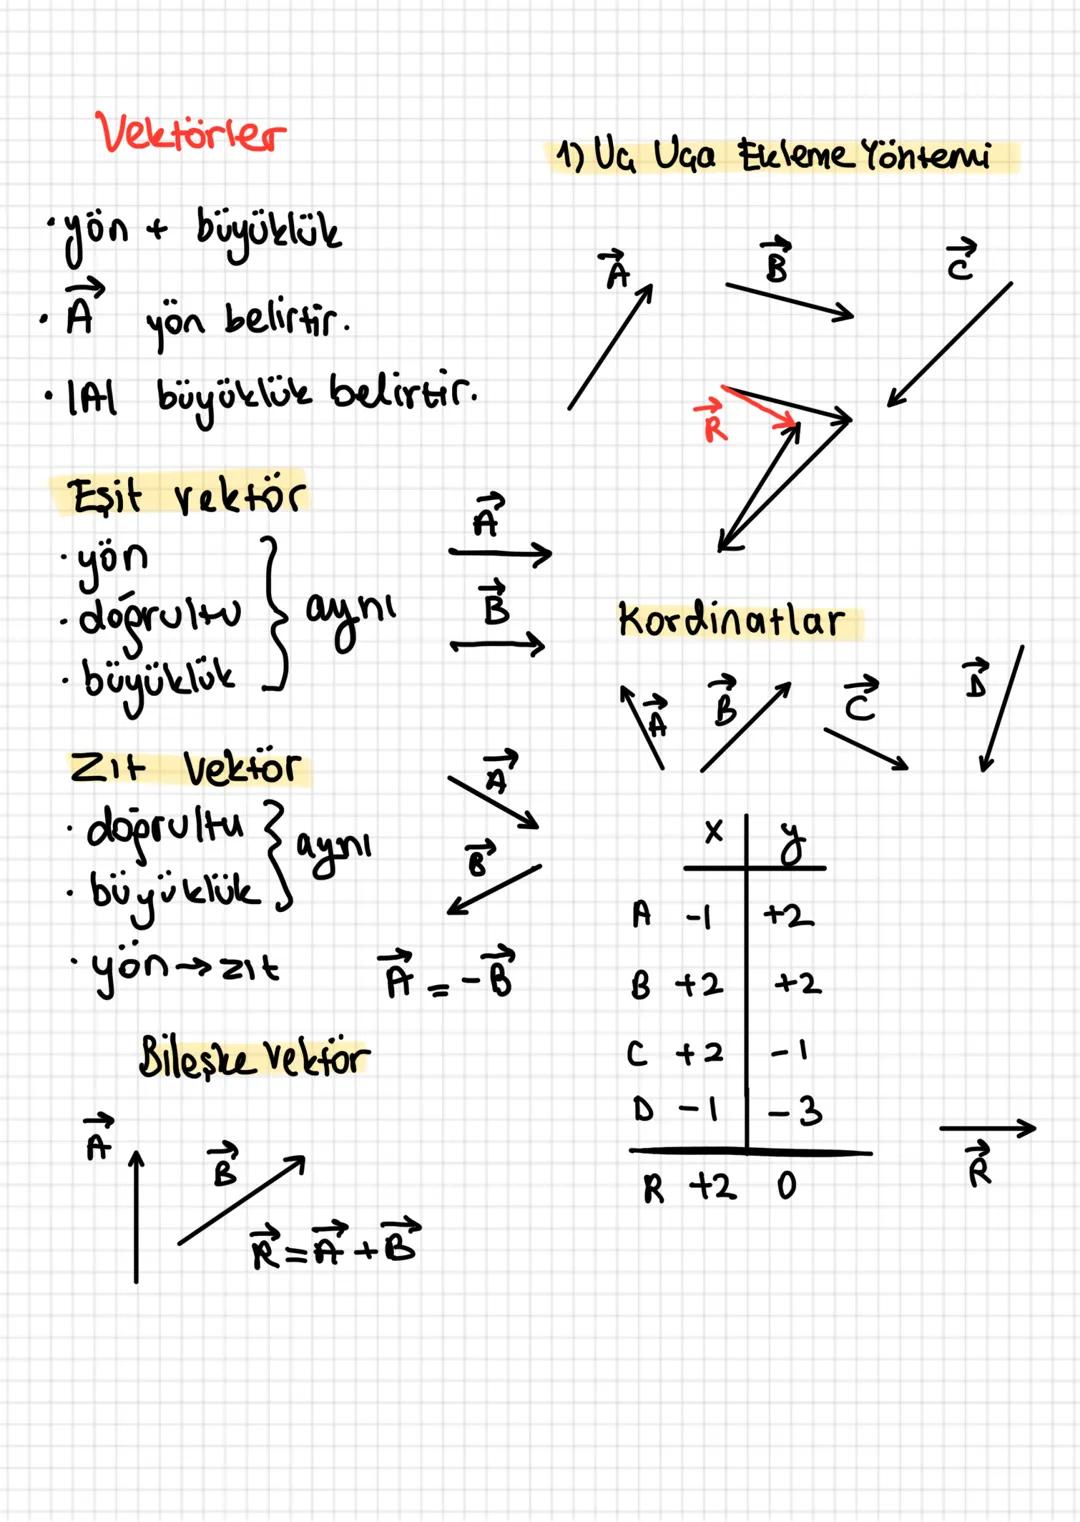 Vektörler
• yön + büyüklük
• A⃗ yön belirtir.
• |A| büyüklük belirtir.
Eşit vektör
• yön
• doğrultu } aynı
• büyüklük
A⃗
B⃗
Zıt Vektör
• doğrultu } aynı
• büyüklük
• yön → zıt
A⃗
B⃗
A⃗ = -B⃗
Bileşke Vektör
A⃗
B⃗
R⃗ = A⃗ + B⃗
1) Uç Uça Ekleme Yöntemi
A⃗ B⃗ C⃗
R⃗
Kordinatlar
A⃗ B⃗ C⃗ D⃗
x y
A -1 +2
B +2 +2
C +2 -1
D -1 -3
R +2 0
R⃗